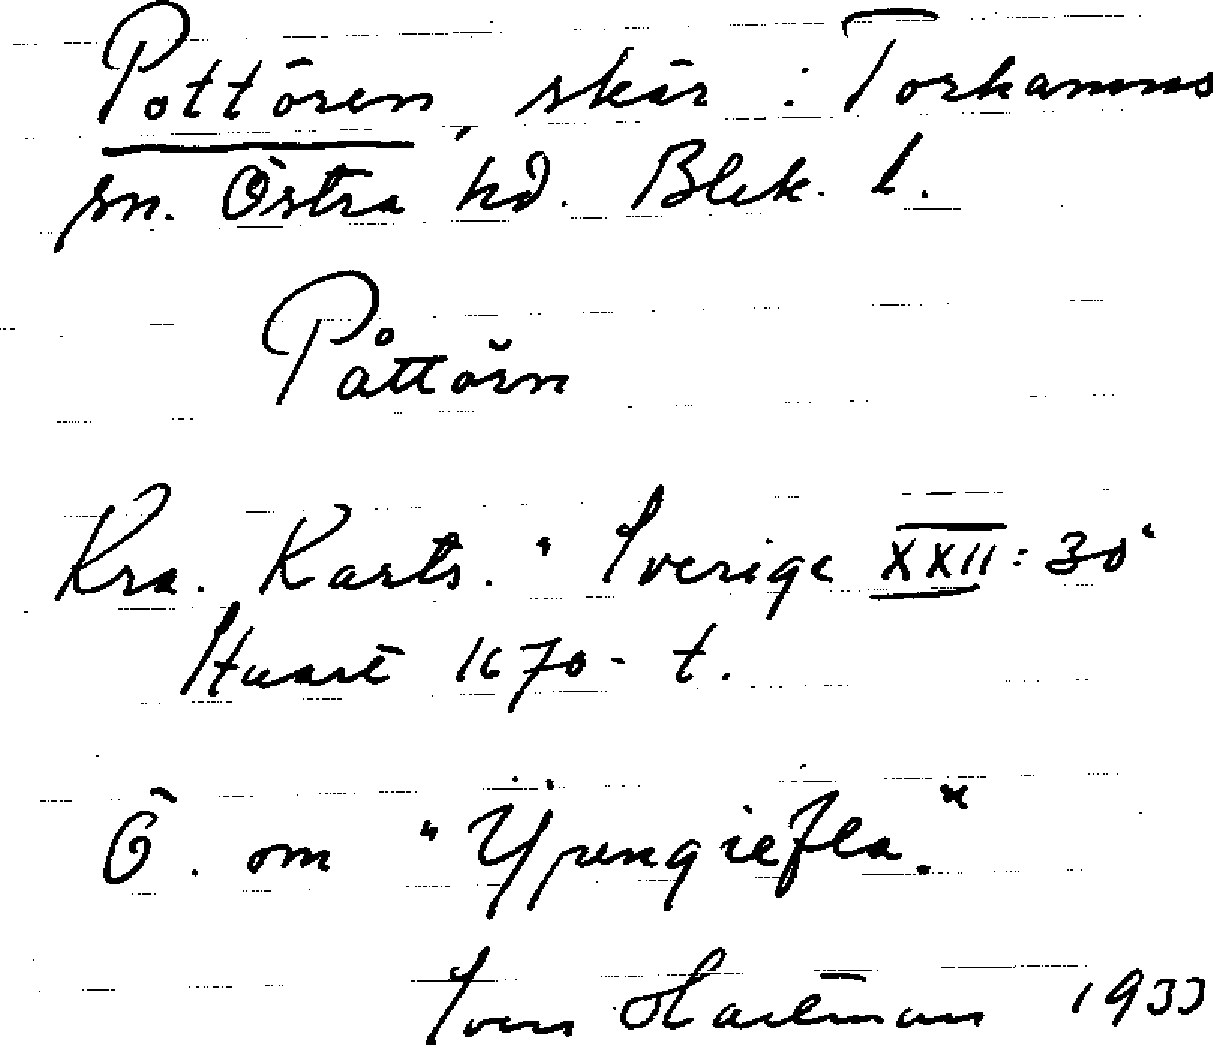 Pottören, skär i Torhamns
sn. Östra hd. Blek. l.
Påttörn
Kra. Karts. "Sverige XXII:30"
Stuart 1670-t.
Ö. om "Ÿpung
Sven Hartman 1933